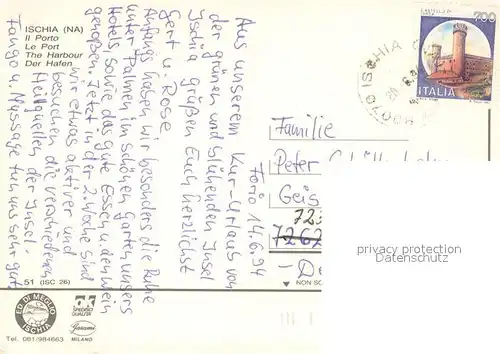 ISCHIA (NA)
Il Porto
Le Port
The Harbour
Der Hafen
700
ITALIA
80070 ISCHIA
Forio 14.6.94
Aus unserem Kur-Urlaub von
der grünen und blühenden Insel
Ischia grüßen Euch herzlichst
Gert u. Rose
Anfangs haben wir besonders die Ruhe
unter Palmen im schönen Garten unseres
Hotels, sowie das gute Essen u. den Wein
genoßen. Jetzt in der 2. Woche sind
wir etwas aktiver und
besuchen die verschiedenen
Heilquellen der Insel.
Fango u. Massage tun uns sehr gut
Familie
Peter
Geis
723
7262
- De
privacy protection
Datenschutz
51 (ISC 26)
ED. DI MEGLIO
ISCHIA
Tel. 081/984663
MILANO
NON SC